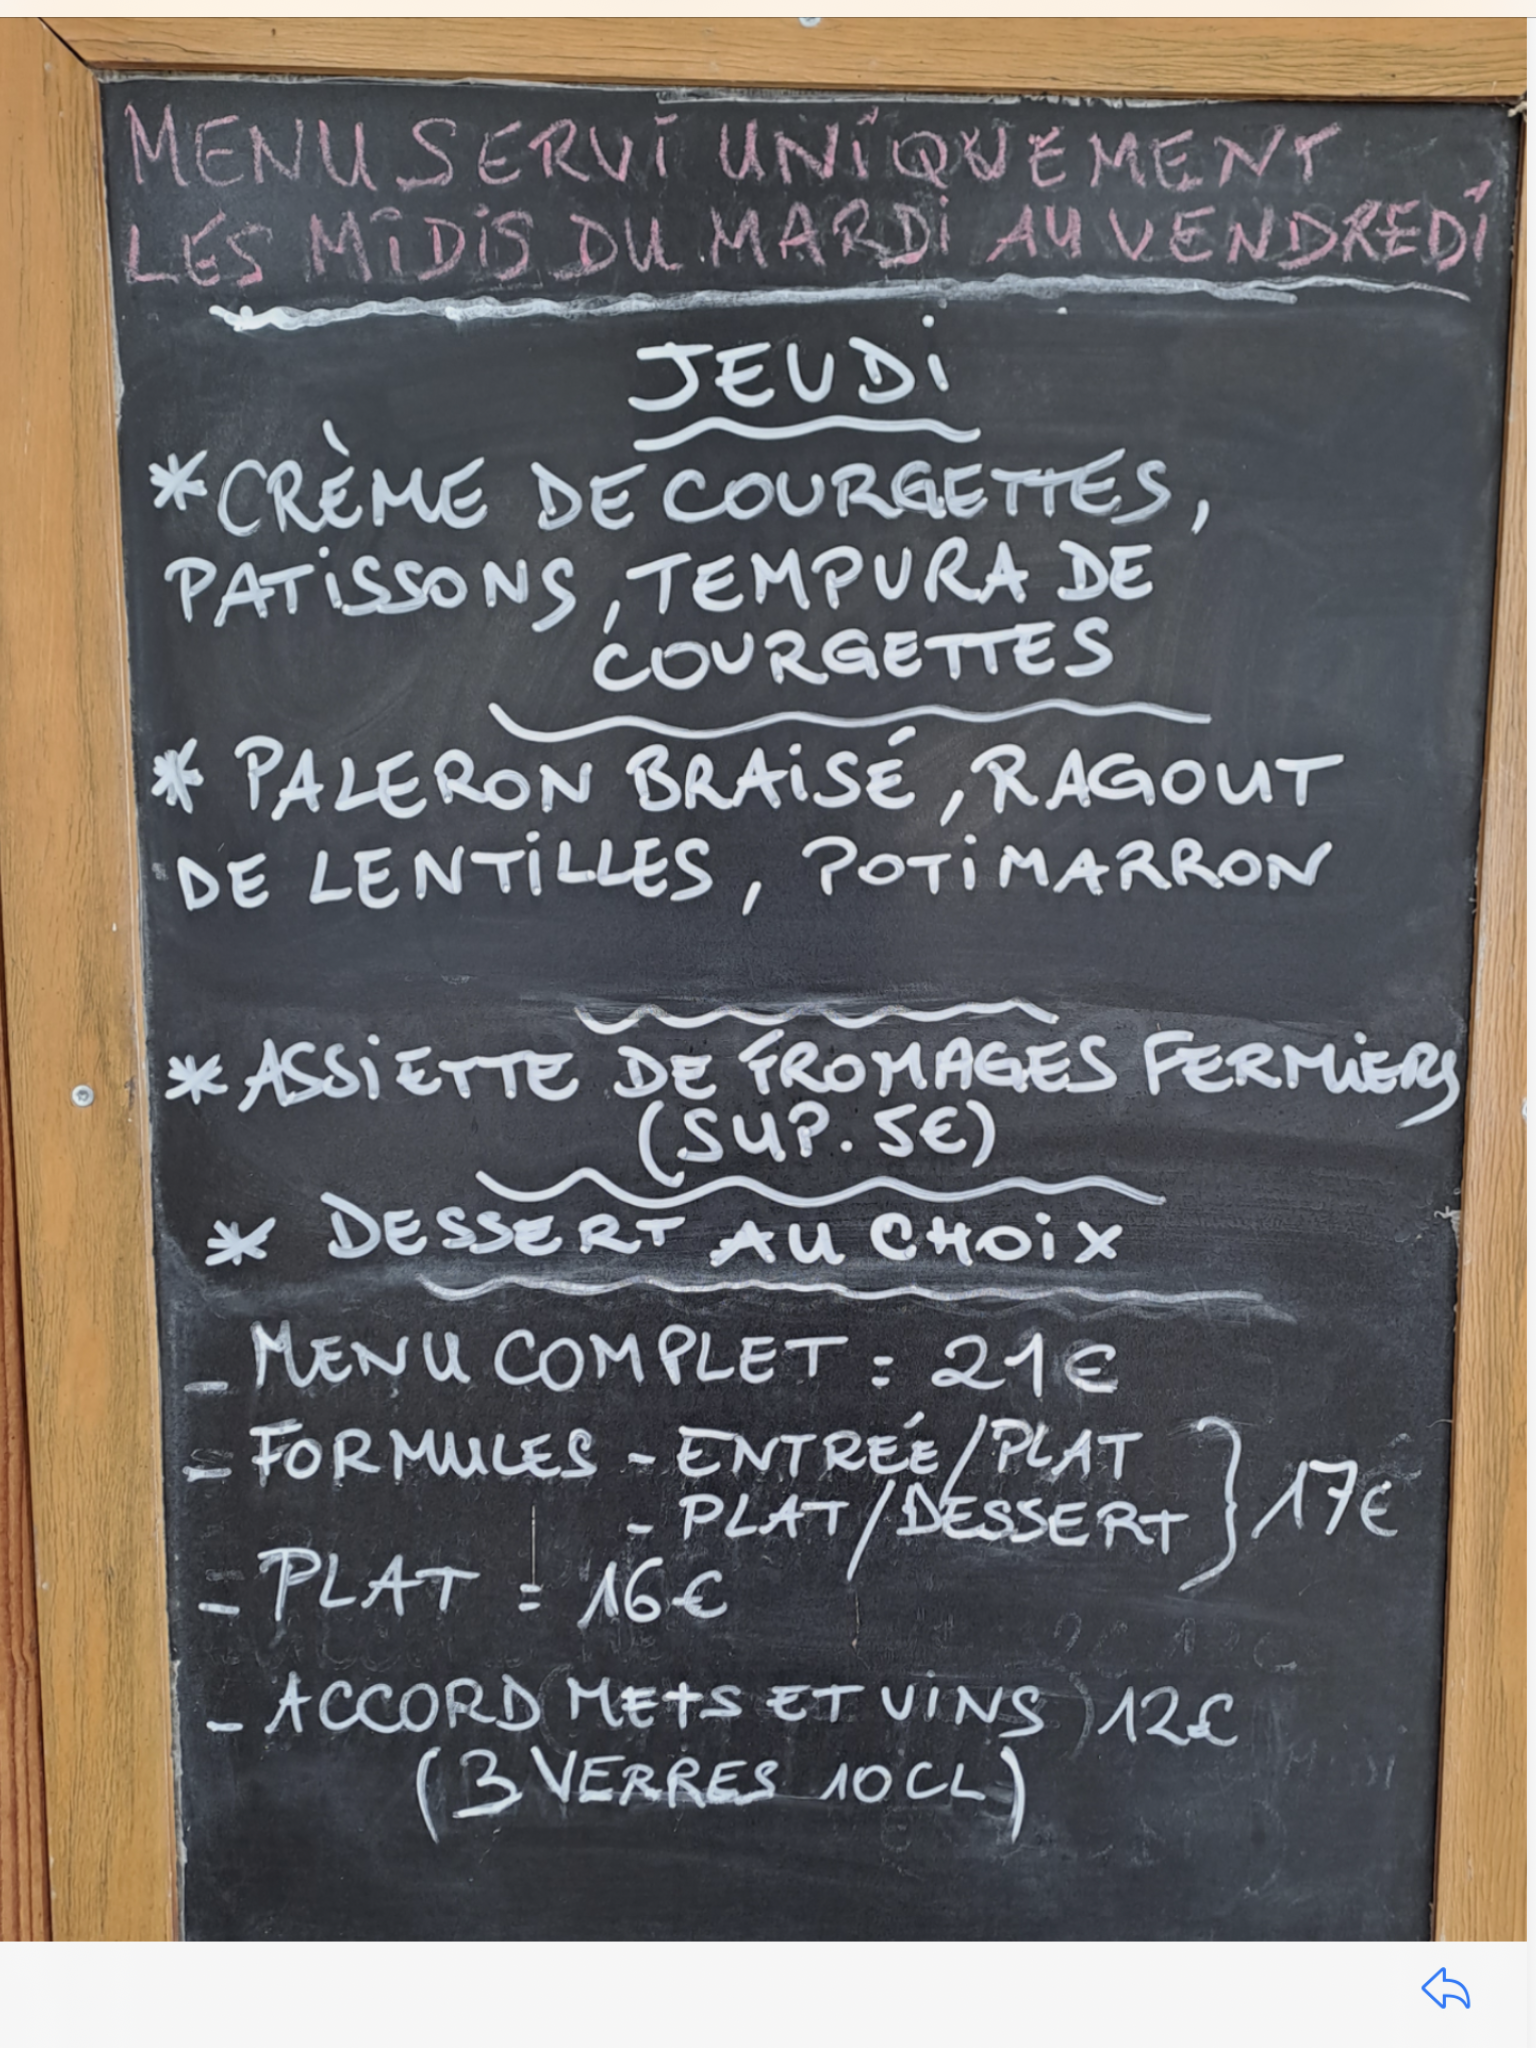 MENU SERVI UNIQUEMENT
LES MIDIS DU MARDI AU VENDREDI
JEUDI
* CRÈME DE COURGETTES,
PATISSONS, TEMPURA DE
COURGETTES
* PALERON BRAISÉ, RAGOUT
DE LENTILLES, POTIMARRON
* ASSIETTE DE FROMAGES FERMIERS
(SUP. 5€)
* DESSERT AU CHOIX
- MENU COMPLET = 21€
- FORMULES - ENTRÉE/PLAT
- PLAT/DESSERT } 17€
- PLAT = 16€
- ACCORD (METS ET VINS) 12€
(3 VERRES 10CL)